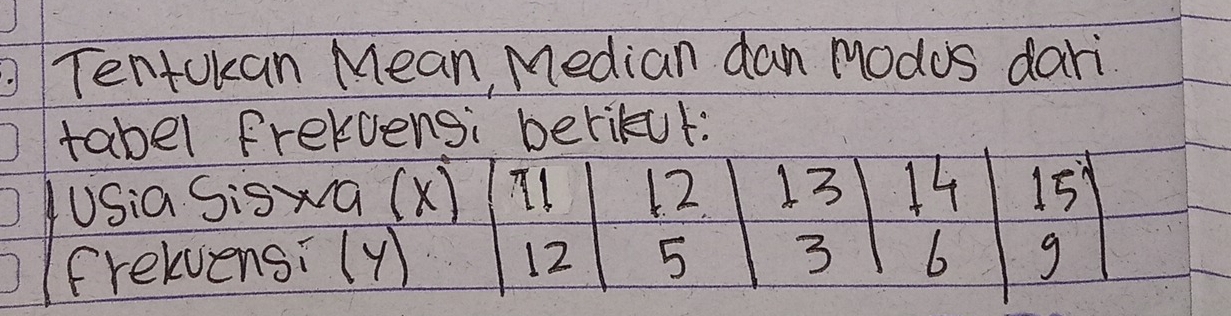 Tentukan Mean, Median dan Modus dari
tabel frekuensi berikut:
Usia Siswa (x) 11 12 13 14 15
frekuensi (y) 12 5 3 6 9